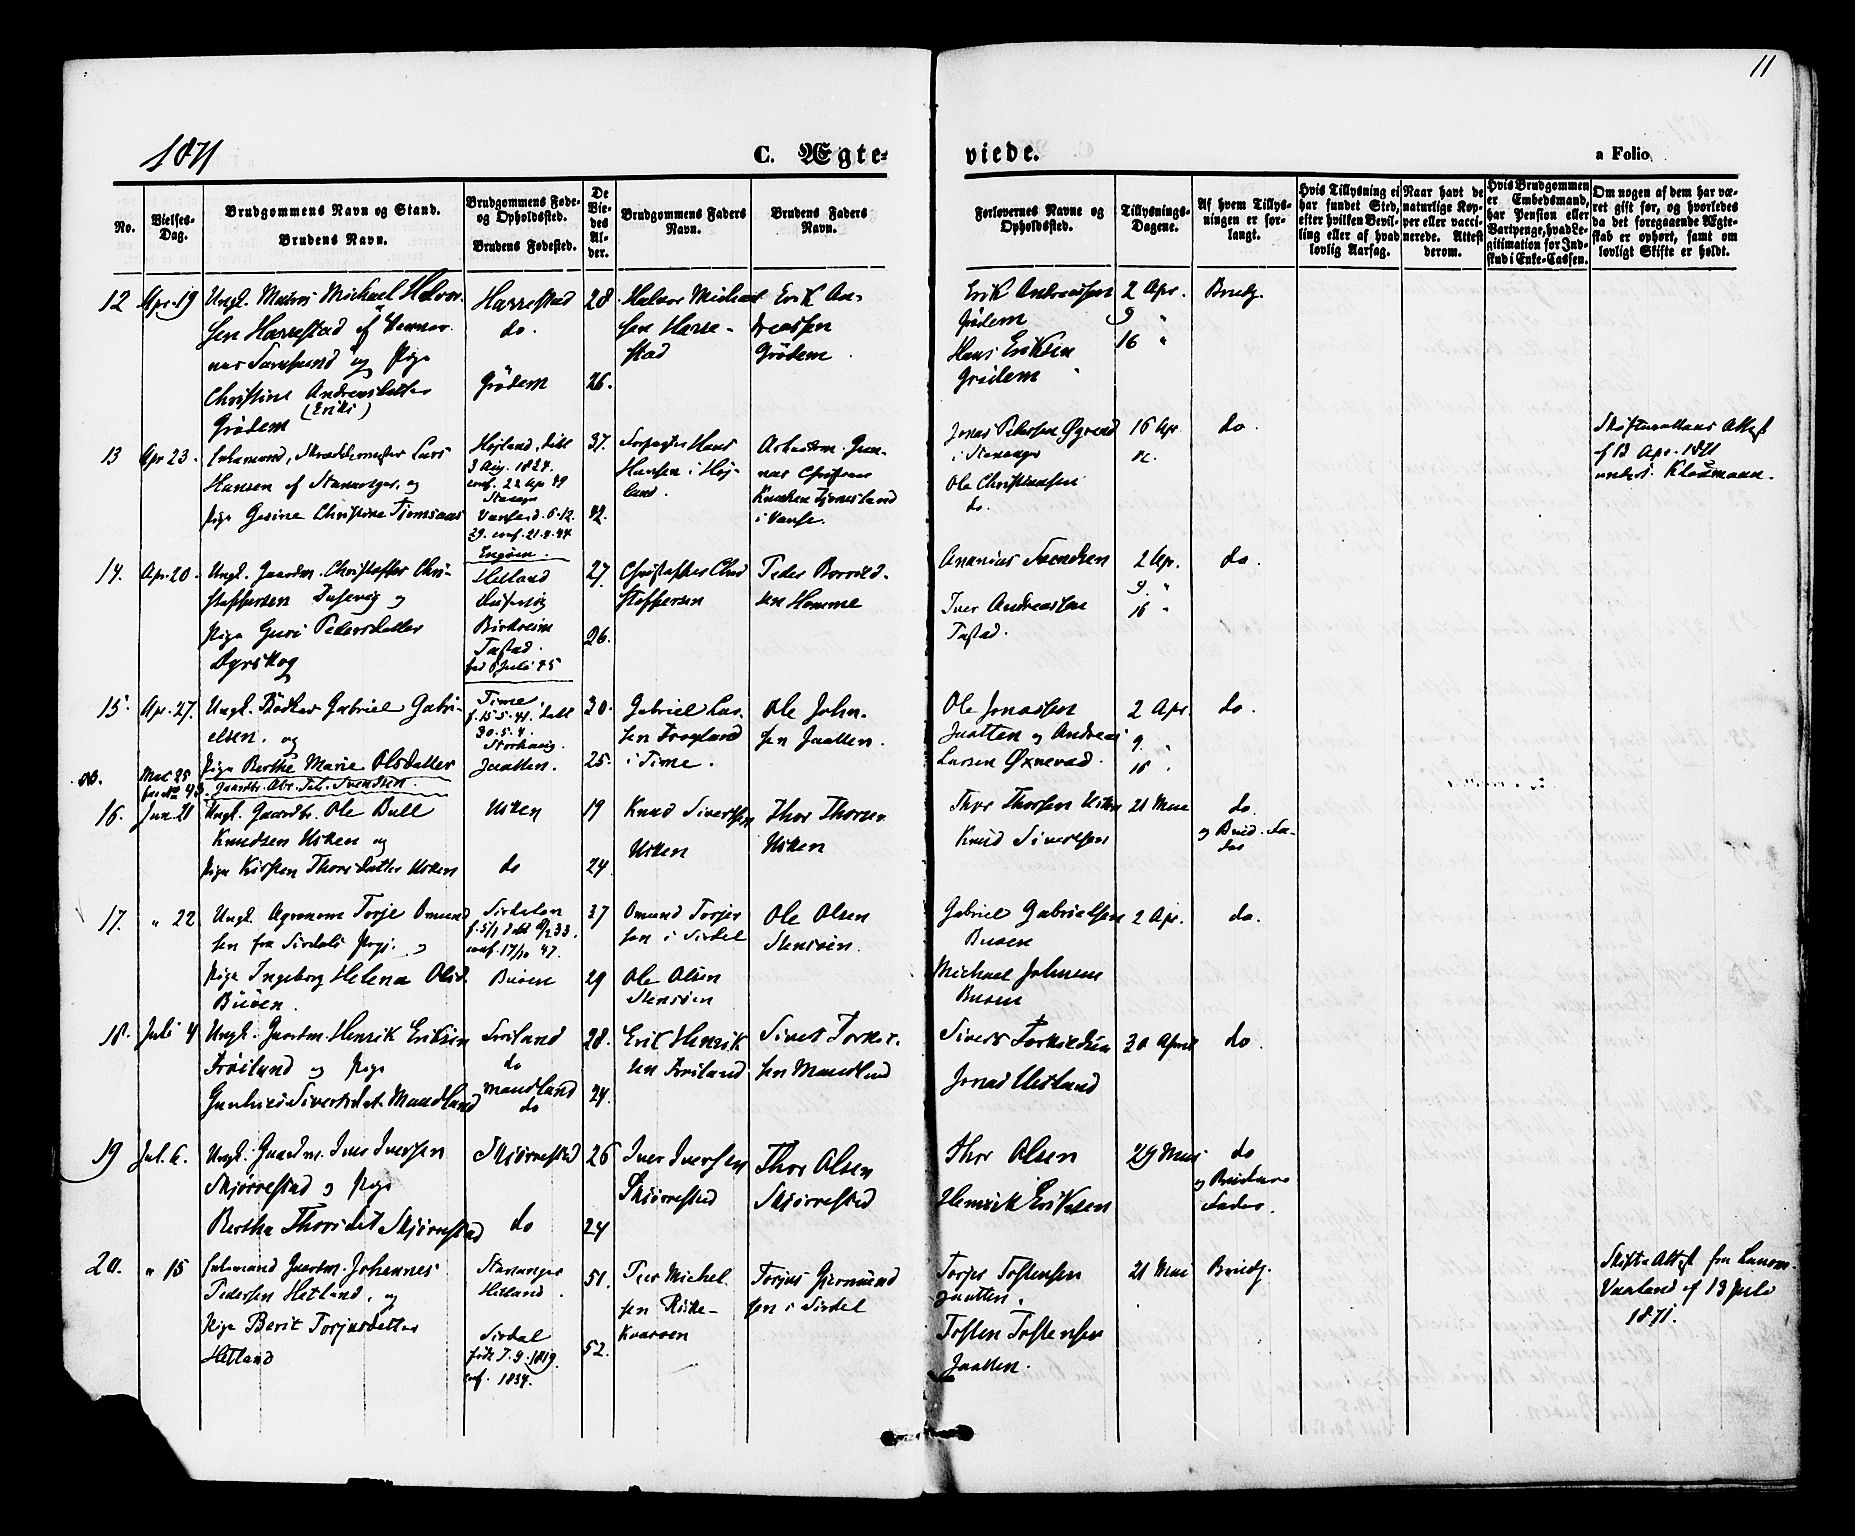 11
1871
C. Ægte-
viede.
a Folio
No.
Vielses-
Dag.
Brudgommens Navn og Stand.
Brudens Navn.
Brudgommens Føde-
og Opholdssted.
Brudens Fødested.
De
Vie-
des
Al-
der.
Brudgommens Faders
Navn.
Brudens Faders
Navn.
Forlovernes Navne og
Opholdssted.
Tillysnings-
Dagene.
Af hvem Tillys-
ningen er for-
langt.
Hvis Tillysning ei
har fundet Sted,
efter hvilken Bevil-
ling eller af hvad
lovlig Aarsag.
Naar havt de
naturlige Kop-
per eller vacci-
nerede. Attest
derom.
Hvis Brudgommen
er Embedsmand,
har Pension eller
Vartpenge, hvad Le-
gitimation for Ind-
skud i Enke-Cassen.
Om nogen af dem har væ-
ret gift før, og hvorledes
da det foregaaende Ægte-
skab er ophørt, samt om
lovligt Skifte er holdt.
12 Apr. 19 Ungk. Michael Halvor-
sen Harrestad af
og Pige
Christine Andreasdatter
(Eriks)
Grödem
Harrestad
do.
Grödem
28
26.
Halvor Michael
sen Harre-
stad
Erik An-
dreassen
Grödem
Erik Andreassen
Grödem
Hans Eriksen
Grödem
2 Apr.
9 "
16 "
Brudg.
13 Apr 23. Enkemand, Skræddermester Lars
Hansen af Stavanger, og
Pige Gesine Christine
Højland, døbt
3 Aug. 1824.
conf. 22 Ap 49
Stavanger
conf. 21.4.44
37.
42.
Hans
Hansen i Høj-
land.
Gun-
nar Christian
i Vanse.
Jonas Pedersen
i Stavanger
Ole Christiansen
do.
16 Ap
do.
Skifterettens Attest
af 13 Apr. 1871
14. Apr. 20. Ungk. Gaardm. Christoffer Chri-
stophersen Dusevig og
Pige Guri Pedersdatter
Dyrskog
Engöen.
Hetland
Dusevig
Birkreim
Tastad.
fød 8 Juli 45
27.
26.
Christoffer Chri
stoffersen
Peder
sen Homme
Ananias Svendsen
Iver Andreassen
Tastad.
2 Apr.
9. "
16 "
do
15. Apr. 27. Ungk. Gabriel Gabri-
elsen. og
Pige Berthe Marie Olsdatter
Time.
f. 15.5.41. døbt
30.5.41.
Storhaug.
Jaatten.
30.
25.
Gabriel Lar-
sen Frogland
i Time.
Ole John-
sen Jaatten.
Ole Jonassen
Jaatten og Andreas
Larsen Øxnevad.
2 Apr.
9. "
16 "
do.
Mai 25
Gaardbr. Svendsen.
16. Jun. 21 Ungk. Gaardbr. Ole Bull
Knudsen Usken og
Pige Kirsten Thorsdatter Usken
Usken
do
19
24.
Knud Sivertsen
Usken
Thor Thorsen
Usken
Thor Thorsen Usken
Knud Sivertsen
21 Mai
do.
og Brud. Fa-
der
17. " 22 Ungk. Agronom Torje Omund
sen fra Sirdals Prgj. og
Pige Ingeborg Helena Olsd.
Buöen.
Sirdalen
f. 5/1 døbt 9/2 33.
conf. 17/10 47.
Buöen
37
29
Omund Torjer
sen i Sirdal
Ole Olsen
Stensöen
Ole Olsen
Stensöen.
Gabriel Gabrielsen
Buöen
Michael Johnsen
Buöen
2 Apr.
do.
18. Juli 4 Ungk. Gaardm. Henrik Eriksen
Fröiland og Pige
Gunhild Sivertsdat. Maudland
Fröiland
do
Maudland
do
28.
24.
Erik Henrik
sen Fröiland
Sivert Torkel-
sen Maudland
Sivert Torkildsen
Jonas
30 April
do.
19 Jul. 6. Ungk. Gaardm. Iver Iversen
Skjörrestad og Pige
Bertha Thorsdat. Skjörrestad
Skjörrestad
do
26
24
Iver Iversen
Skjörrestad
Thor Olsen
Skjörrestad
Thor Olsen
Henrik Eriksen
29 Mai
do
og Brudens
Fader.
20. " 15 Enkemand Gaardm. Johannes
Pedersen Hetland, og
Pige Berit Torjusdatter
Hetland
Stavanger
Hetland.
Sirdal
født 7.9.1819.
conf. 1834.
51.
52.
Peer Michel
sen
Torjus Giermund
sen i Sirdal
Torjer Tostensen
Jaatten.
Tosten Tostensen
Jaatten.
21 Mai
Brudg.
Skifte-Attest fra
af 13 Juli
1871.